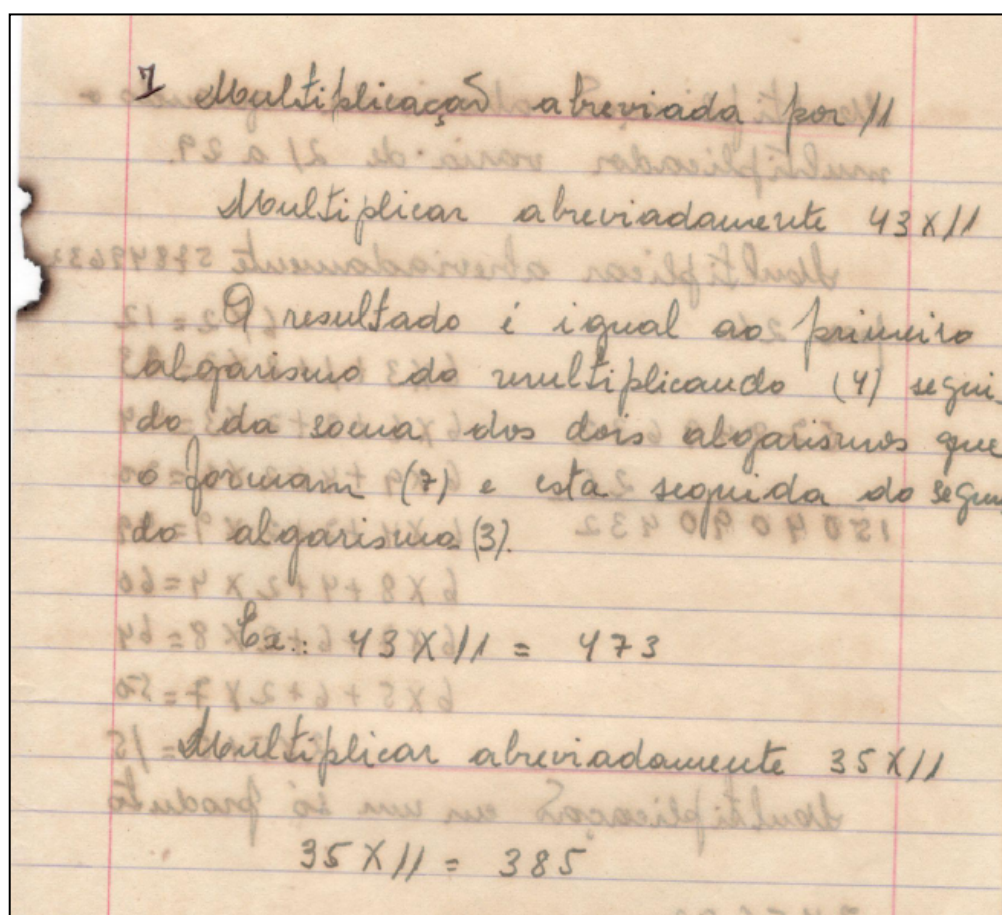 1 Multiplicação abreviada por 11
Multiplicar abreviadamente 43 X 11
O resultado é igual ao primeiro
algarismo do multiplicando (4) segui-
do da soma dos dois algarismos que
o formam (7) e esta seguida do segun
do algarismo (3).
Ex.: 43 X 11 = 473
Multiplicar abreviadamente 35 X 11
35 X 11 = 385